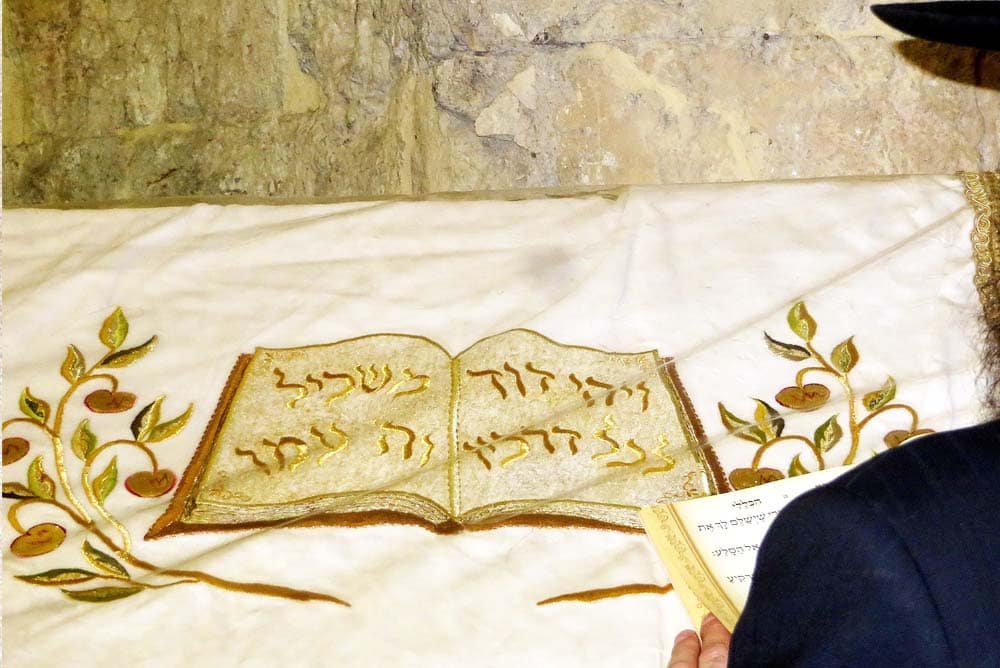 ויהי דוד
לכל דרכיו
משכיל
וה עמו
שֶׁיְשַׁלֶּם לָךְ אֶת
אֶל הַסָּלַע: